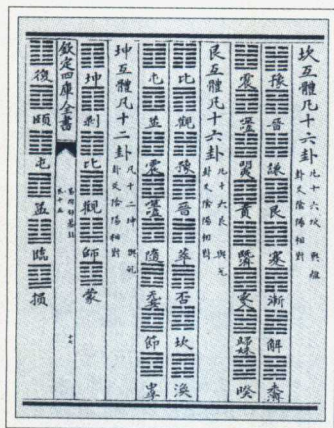 坎互體凡十六卦
凡十六坎與離
卦爻陰陽相對
豫晉謙艮蹇漸解未濟
震噬嗑明夷賁既濟家人歸妹睽
艮互體凡十六卦
凡十六艮與兌
卦爻陰陽相對
比觀豫晉萃否坎渙
屯益震噬嗑隨无妄節中孚
坤互體凡十二卦
凡十二坤與乾
卦爻陰陽相對
坤剝比觀師蒙
欽定四庫全書
卷十五
十七
復頤屯益臨損